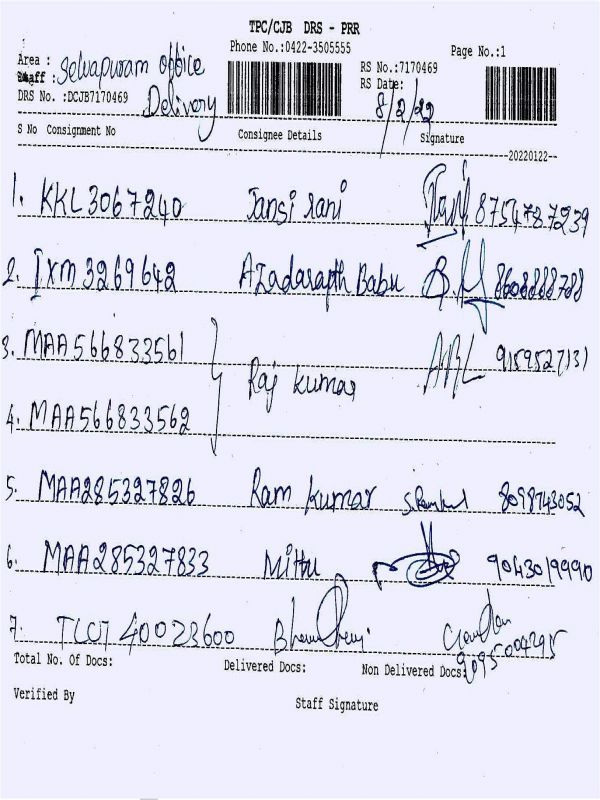 TPC/CJB DRS - PRR
Phone No.:0422-3505555
Page No.:1
Area : Selvapuram office
Staff :
RS No.:7170469
RS Date: 8/2/22
DRS No. :DCJB7170469 Delivery
S No Consignment No Consignee Details Signature
--20220122--
1. KKL3067240 Jansi rani 8754787239
2. IXM3269642 Azadarapth Babu 8608888788
3. MAA566833561 Raj kumar 9159527131
4. MAA566833562
5. MAA285327826 Ram kumar 8098743052
6. MAA285327833 Mittu 9043019990
7. 40023600
9095004295
Total No. Of Docs: Delivered Docs: Non Delivered Docs:
Verified By Staff Signature